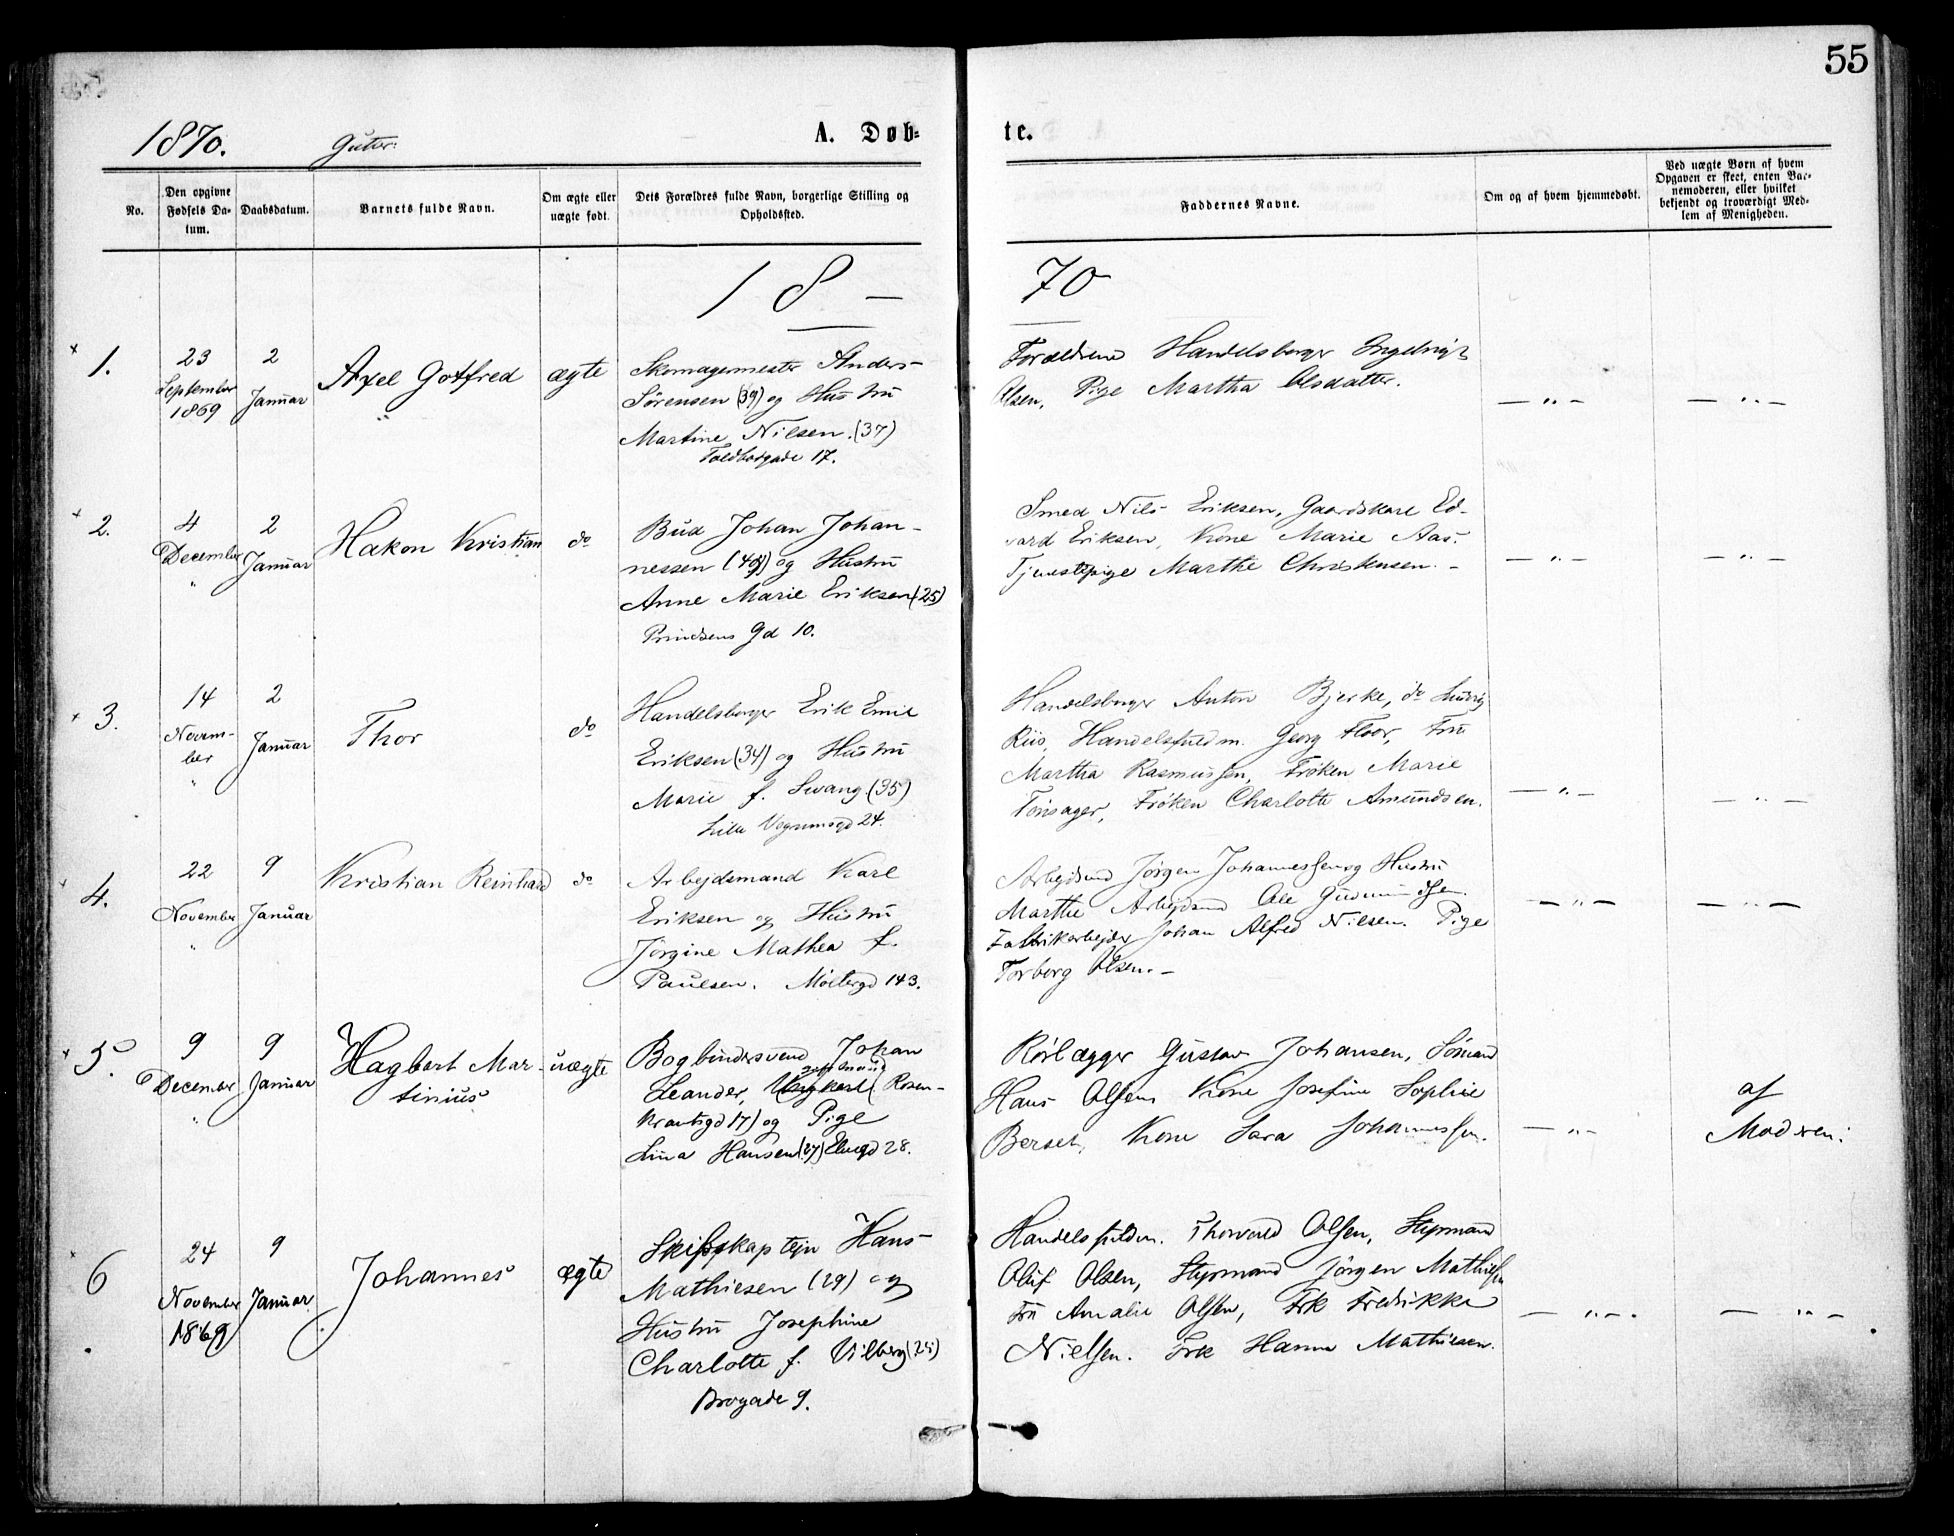 55
1870. Gutter:
A. Døb-
te.
No.
Den opgivne Fødsels Da-
tum.
Daabsdatum.
Barnets fulde Navn.
Om ægte eller
uægte født.
Dets Forældres fulde Navn, borgerlige Stilling og
Opholdsted.
Faddernes Navne.
Om og af hvem hjemmedøbt.
Ved uægte Børn af hvem
Opgaven er skeet, enten Bar-
nemoderen, eller hvilket
bekjendt og troværdigt Med-
lem af Menigheden.
18 —
70
× 1.
23
September
1869
2
Januar
Axel Gotfred
"
ægte
Skomagermester Anders
Sörensen (39) og Hustru
Martine Nilsen. (37)
Toldbodgade 17.
Forældrene Handelsborger Ingebrigt
Olsen, Pige Martha Olsdatter.
— " —
— " —
× 2.
4
December
"
2
Januar
Hakon Kristian
do
Bud Johan Johan-
nessen (49) og Hustru
Anne Marie Eriksen (25)
Prindsens Gd 10.
Smed Nils Eriksen, Gaardskarl Ed-
vard Eriksen, Kone Marie Aas.
Tjenestepige Marthe Christensen. -
— " —
— " —
× 3.
14
Novem-
ber
"
2
Januar
Thor
do
Handelsborger Erik Emil
Eriksen (34) og Hustru
Marie f. Svang. (35)
Lille Vognmsgd 24.
Handelsborger Anton Bjerke, do Ludvig
Riis, Handelsfuldm. Georg Floor, Fru
Martha Rasmussen, Frøken Marie
Tonsager, Frøken Charlotte Amundsen.
— " —
— " —
× 4.
22
November
"
9
Januar
Kristian Reinhard
do
Arbejdsmand Karl
Eriksen og Hustru
Jörgine Mathea f.
Paulsen. Möllergd 143.
Arbejdsmd Jörgen Johannessen og Hustru
Marthe Arbejdsmd Ole Gudmundsen.
Fabrikarbejder Johan Alfred Nilsen. Pige
Torborg Olsen. -
— " —
— " —
× 5.
9
December
"
9
Januar
Hagbart Mar-
tinius
uægte
Bogbindersvend Johan
Leander, Ungkarl (Rosen-
krantsgd 17) og Pige
Lina Hansen (27) Elvegd 28.
Rörlægger Gustav Johansen, Sömand
Hans Olsen, Kone Josefine Sophie
Berset, Kone Sara Johannessen.
— " —
af
Moderen:
× 6
24
November
1869
9
Januar
Johannes
ægte
Skibskaptejn Hans
Mathiesen (29) og
Hustru Josephine
Charlotte f. Vilberg (25)
Brogade 9.
Handelsfuldm. Thorvald Olsen, Styrmand
Oluf Olsen, Styrmand Jörgen Mathiesen
Fru Amalie Olsen, Frk Fredrikke
Nielsen. Frk Hanna Mathiesen.
— " — .
— " —